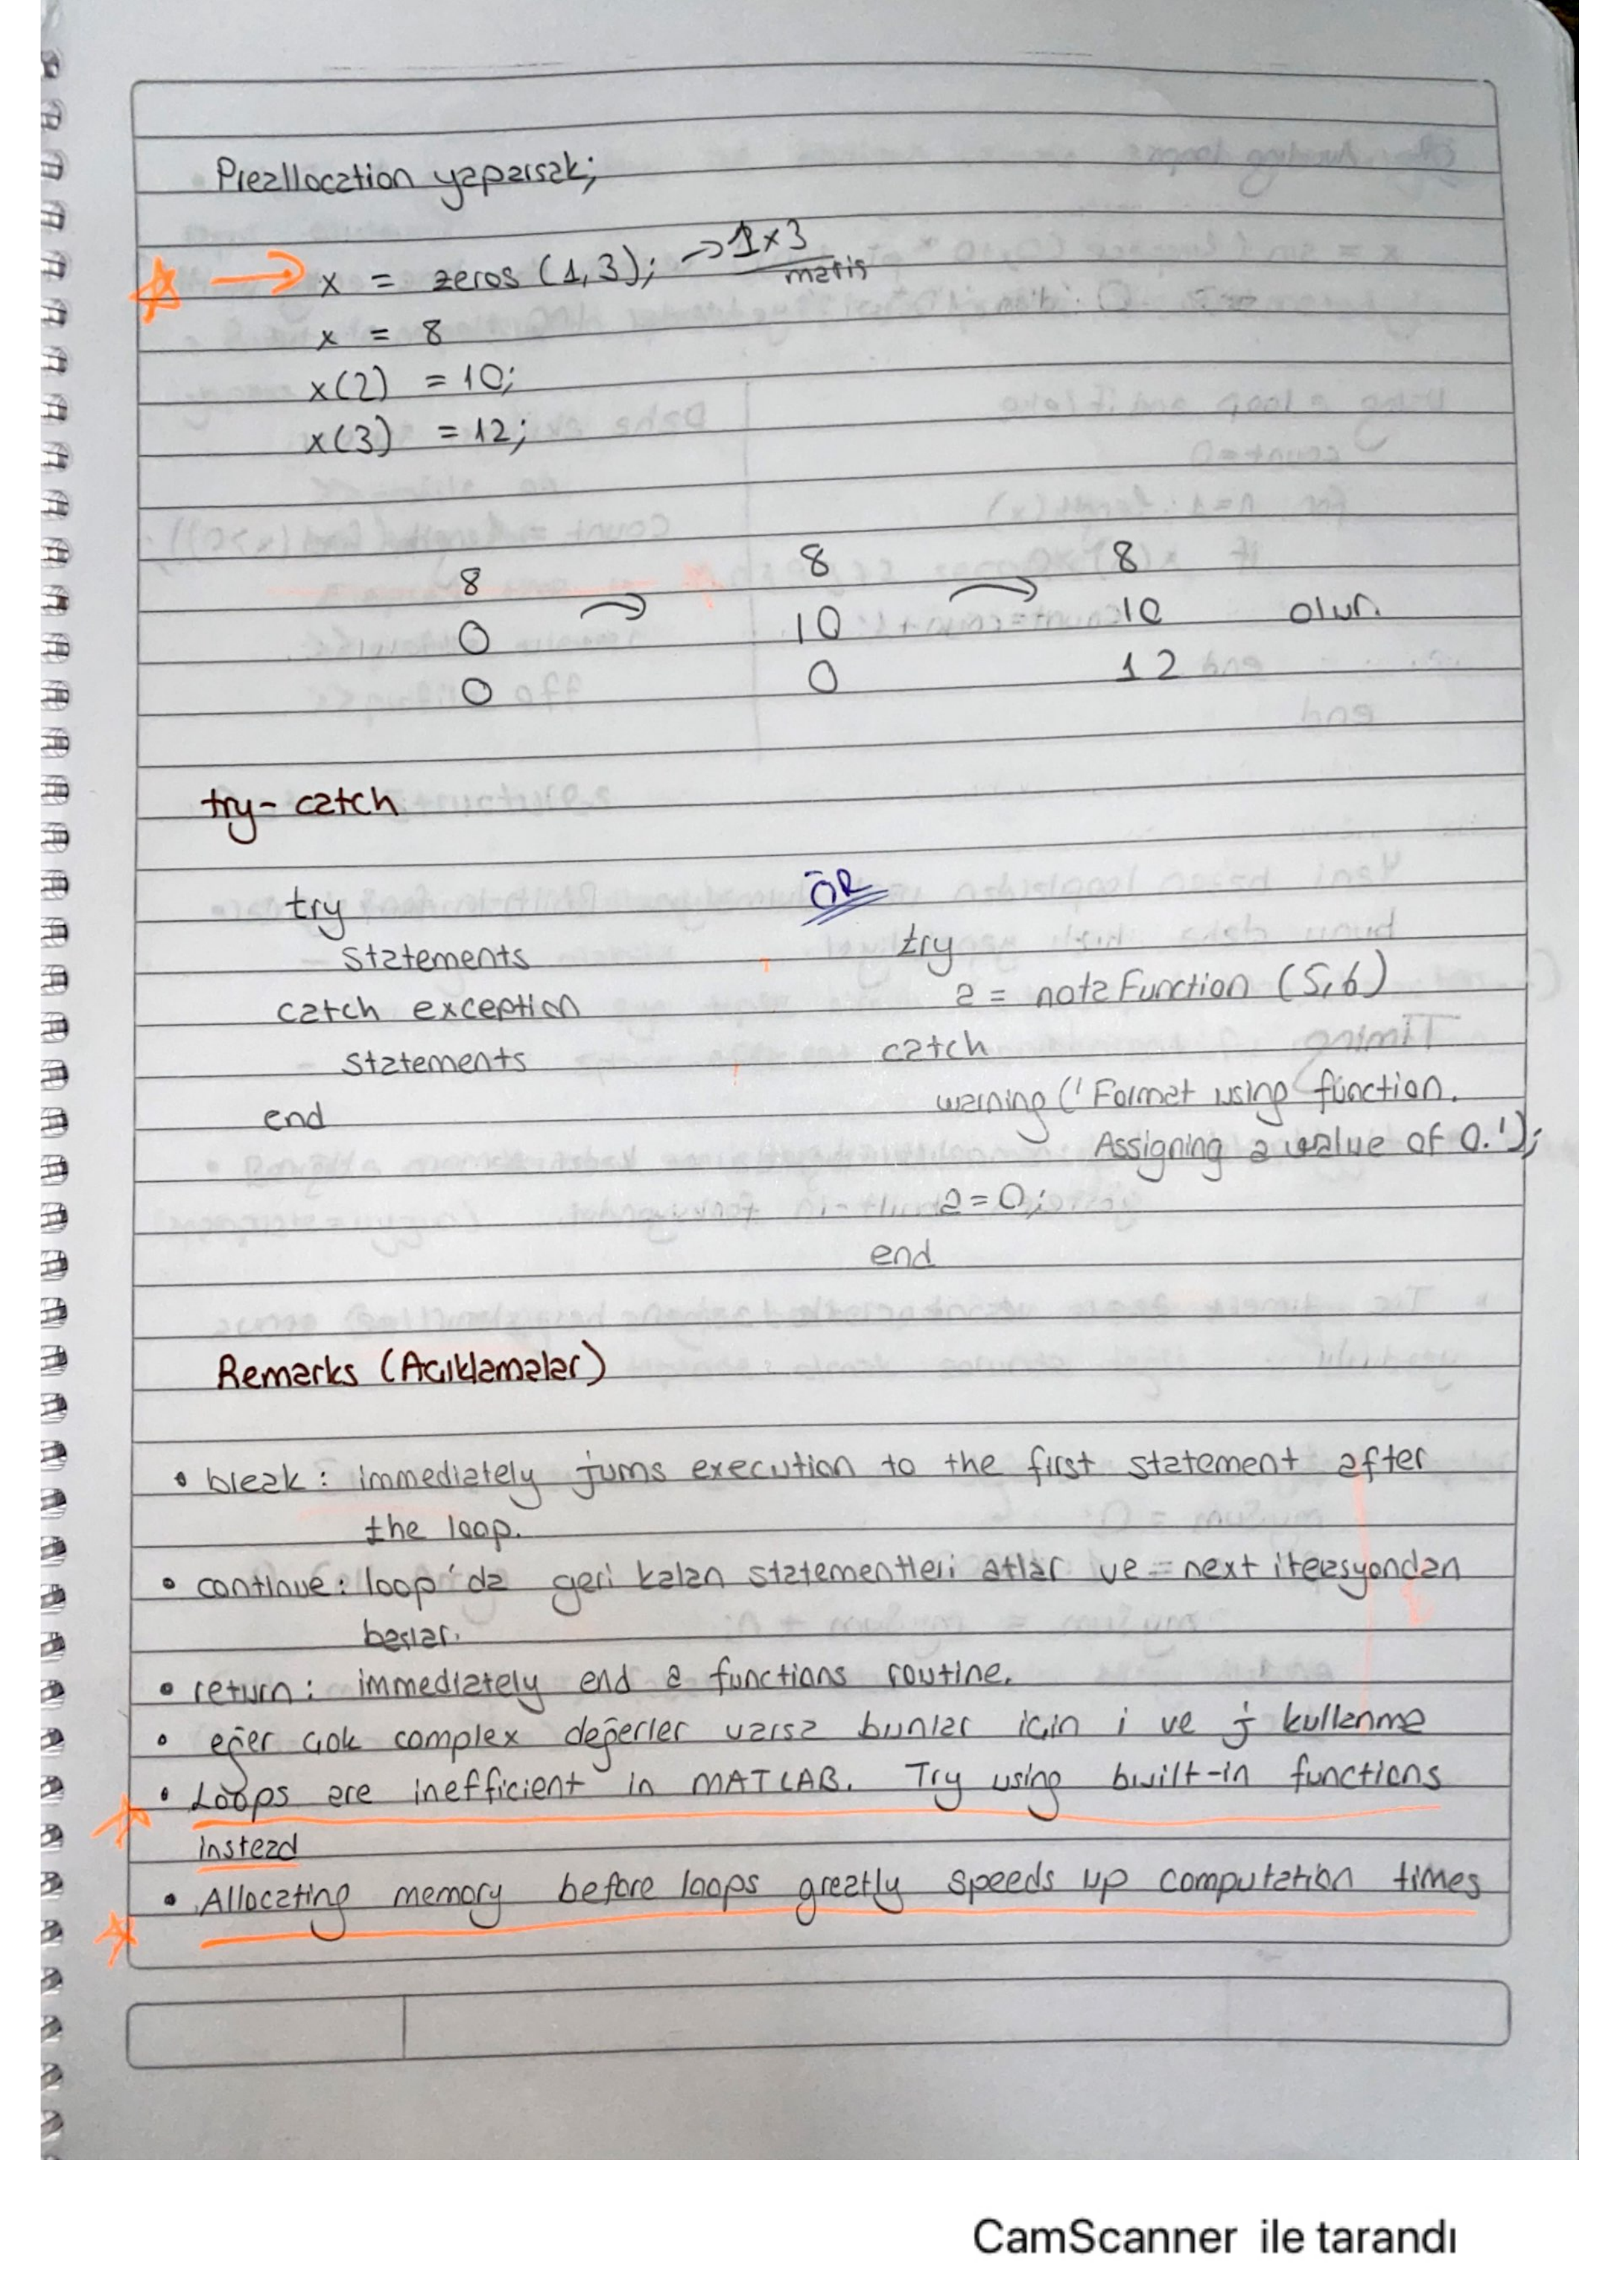 Preallocation yaparsak;
→ x = zeros (1,3); → 1x3
matris
x = 8
x(2) = 10;
x(3) = 12;
8 8 8
0 10 10 olur.
0 0 12
try-catch
ÖR
try
statements
catch exception
statements
end
try
a = notaFunction (5,6)
catch
warning ('Format using function.
Assigning a value of 0.');
a = 0;
end
Remarks (Acıklamalar)
• break: immediately jums execution to the first statement after
the loop.
• continue: loop'da geri kalan statementleri atlar ve next iterasyondan
başlar.
• return: immediately end a functions routine.
• eğer çok complex değerler varsa bunlar için i ve j kullanma
• Loops are inefficient in MATLAB. Try using built-in functions
instead
• Allocating memory before loops greatly speeds up computation times
CamScanner ile tarandı